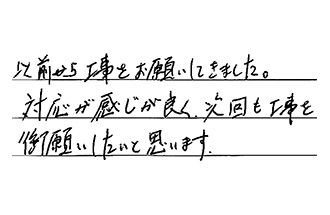 以前から工事をお願いしてきました。
対応が感じが良く、次回も工事を
御願いしたいと思います。